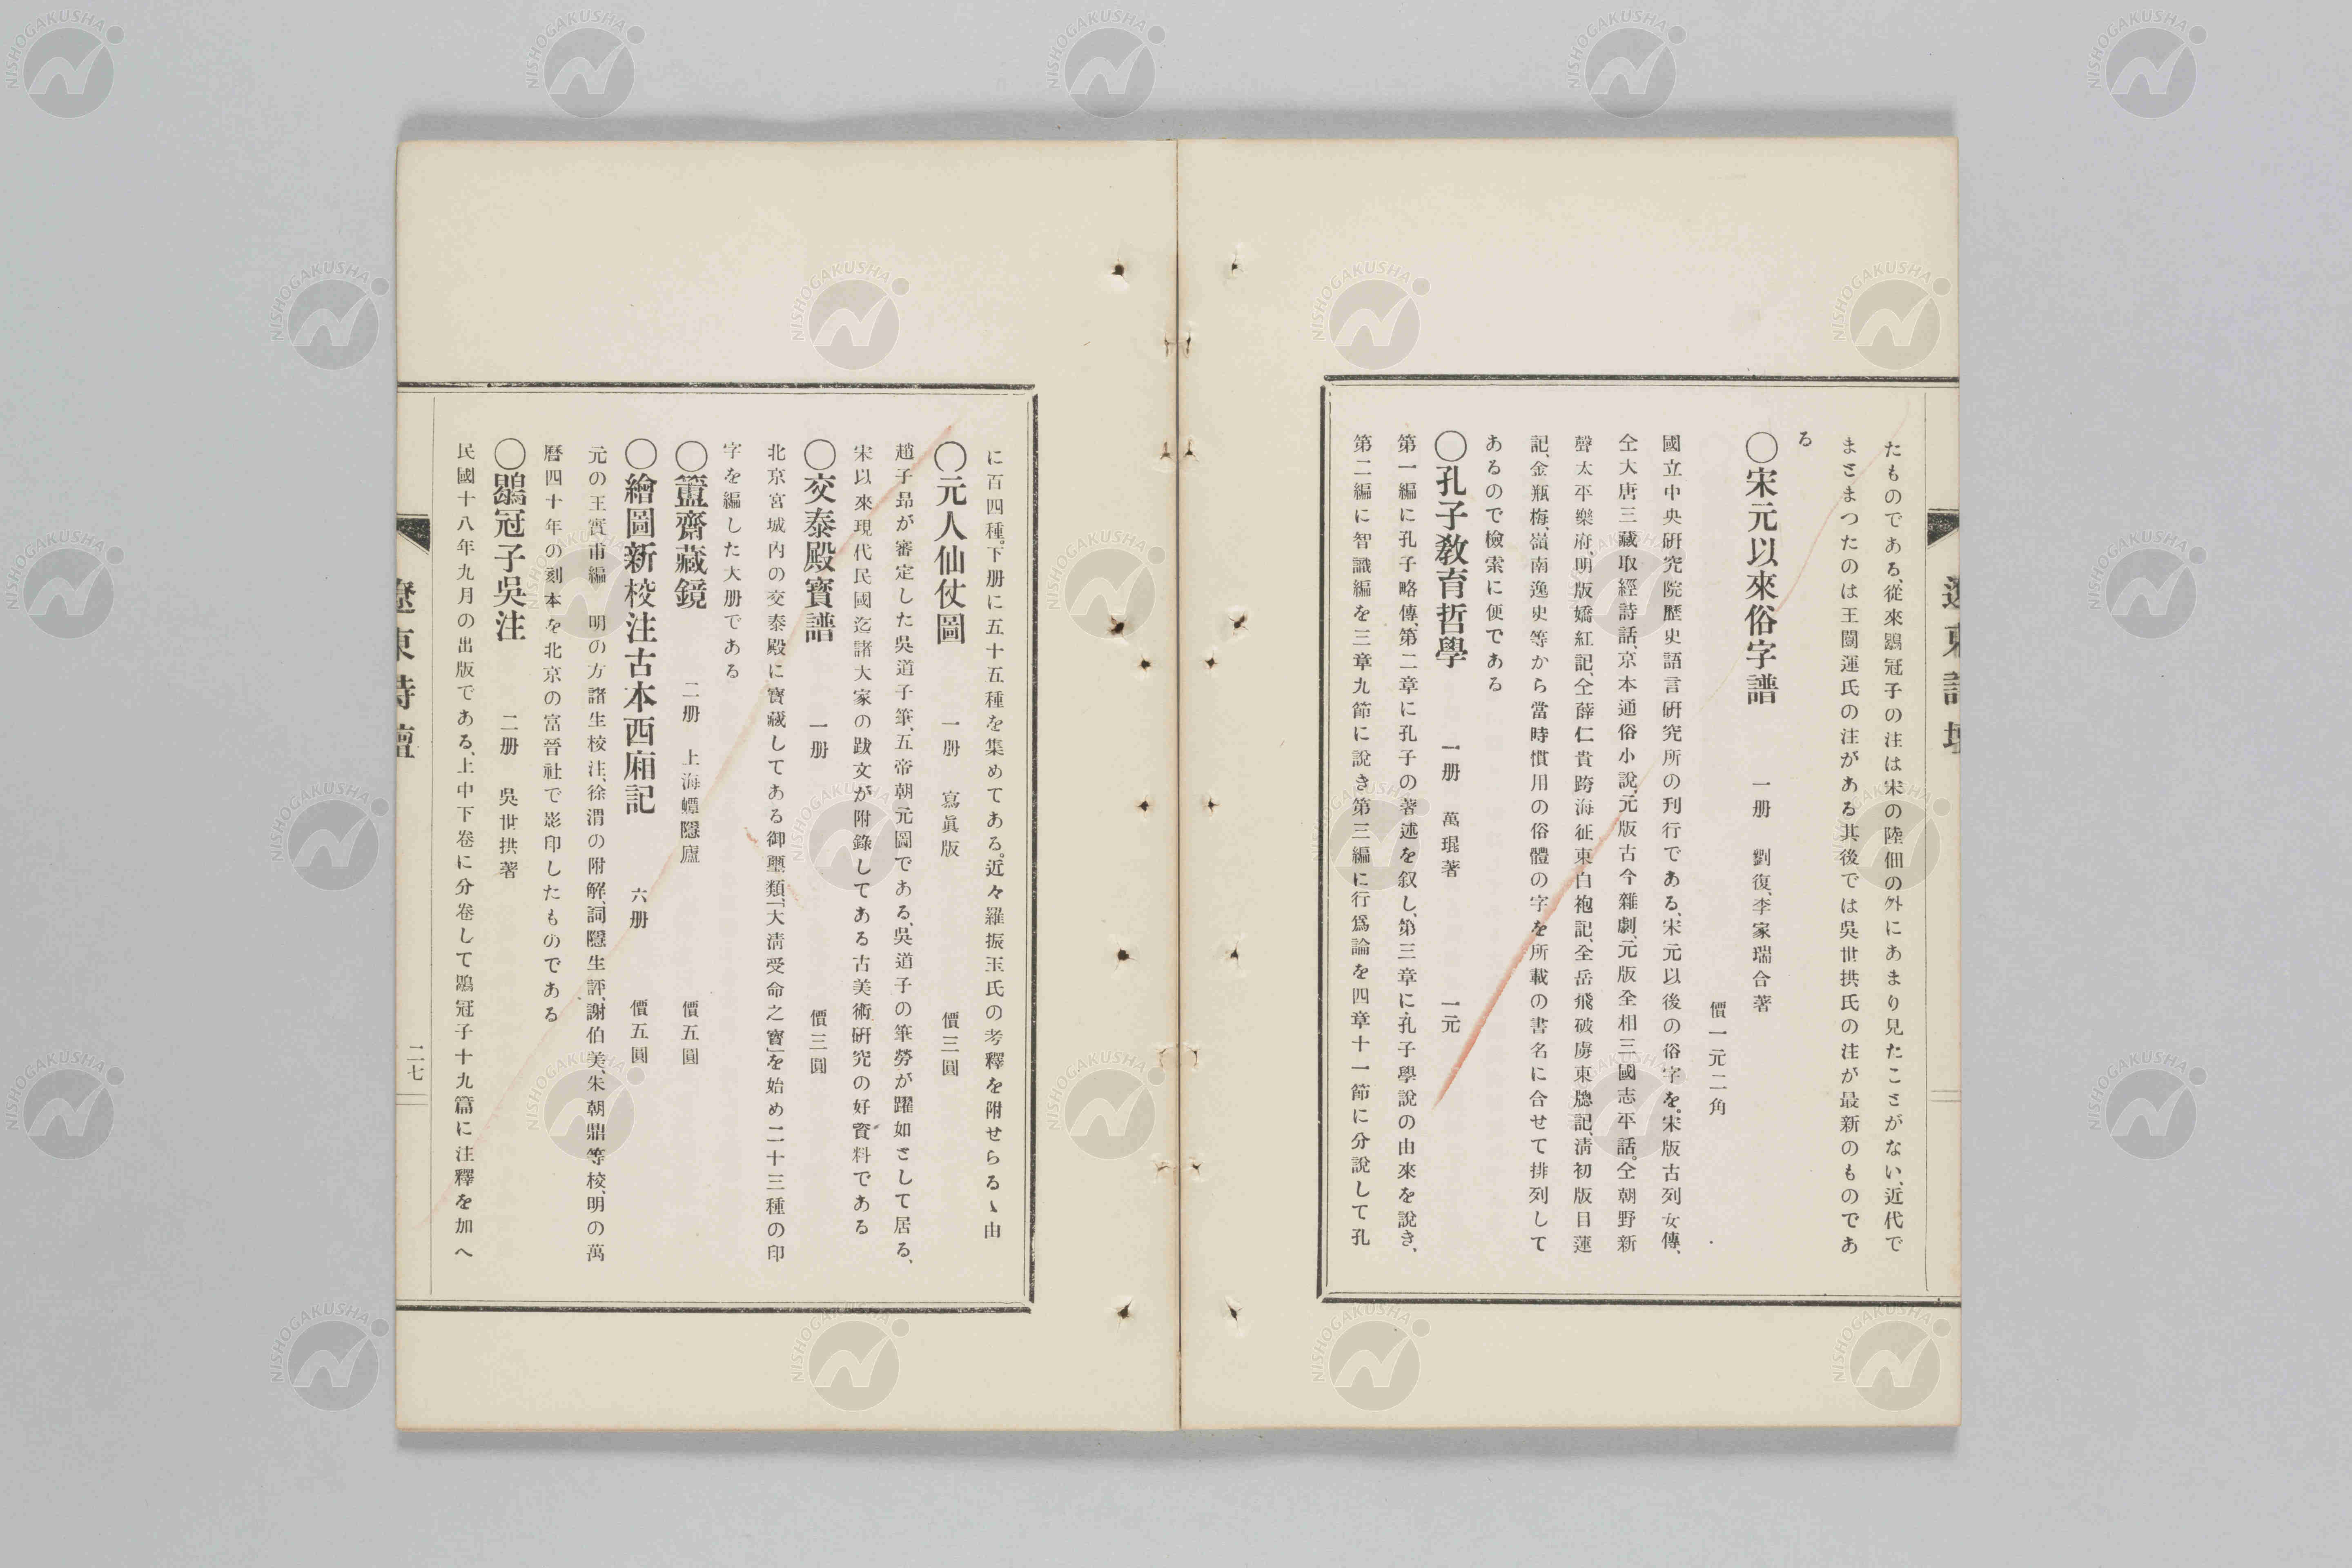 遼東詩壇
たものである、從來鶡冠子の注は宋の陸佃の外にあまり見たことがない、近代で
まとまつたのは王闓運氏の注がある其後では吳世拱氏の注が最新のものであ
る
〇宋元以來俗字譜　一册　劉復、李家瑞合著
價一元二角
國立中央硏究院歷史語言硏究所の刊行である、宋元以後の俗字を。宋版古列女傳、
仝大唐三藏取經詩話、京本通俗小說、元版古今雜劇、元版全相三國志平話。仝朝野新
聲太平樂府、明版嬌紅記、仝薛仁貴跨海征東白袍記、全岳飛破虜東牕記、淸初版目蓮
記、金瓶梅、嶺南逸史等から當時慣用の俗體の字を所載の書名に合せて排列して
あるので檢索に便である
〇孔子敎育哲學　一册　萬琨著　一元
第一編に孔子略傳、第二章に孔子の著述を叙し、第三章に孔子學說の由來を說き、
第二編に智識編を三章九節に說き第三編に行爲論を四章十一節に分說して孔
に百四種。下册に五十五種を集めてある。近々羅振玉氏の考釋を附せらるゝ由
〇元人仙仗圖　一册　寫眞版　價三圓
趙子昻が審定した吳道子筆、五帝朝元圖である、吳道子の筆勞が躍如として居る、
宋以來現代民國迄諸大家の跋文が附錄してある古美術硏究の好資料である
〇交泰殿寳譜　一册　價三圓
北京宮城內の交泰殿に寳藏してある御璽類「大淸受命之寳」を始め二十三種の印
字を編した大册である
〇簠齋藏鏡　二册　上海蟫隱廬　價五圓
〇繪圖新校注古本西廂記　六册　價五圓
元の王實甫編　明の方諸生校注、徐渭の附解、詞隱生評、謝伯美、朱朝鼎等校、明の萬
曆四十年の刻本を北京の富晉社で影印したものである
〇鶡冠子吳注　二册　吳世拱著
民國十八年九月の出版である、上中下卷に分卷して鶡冠子十九篇に注釋を加へ
遼東詩壇
二七
NISHOGAKUSHA